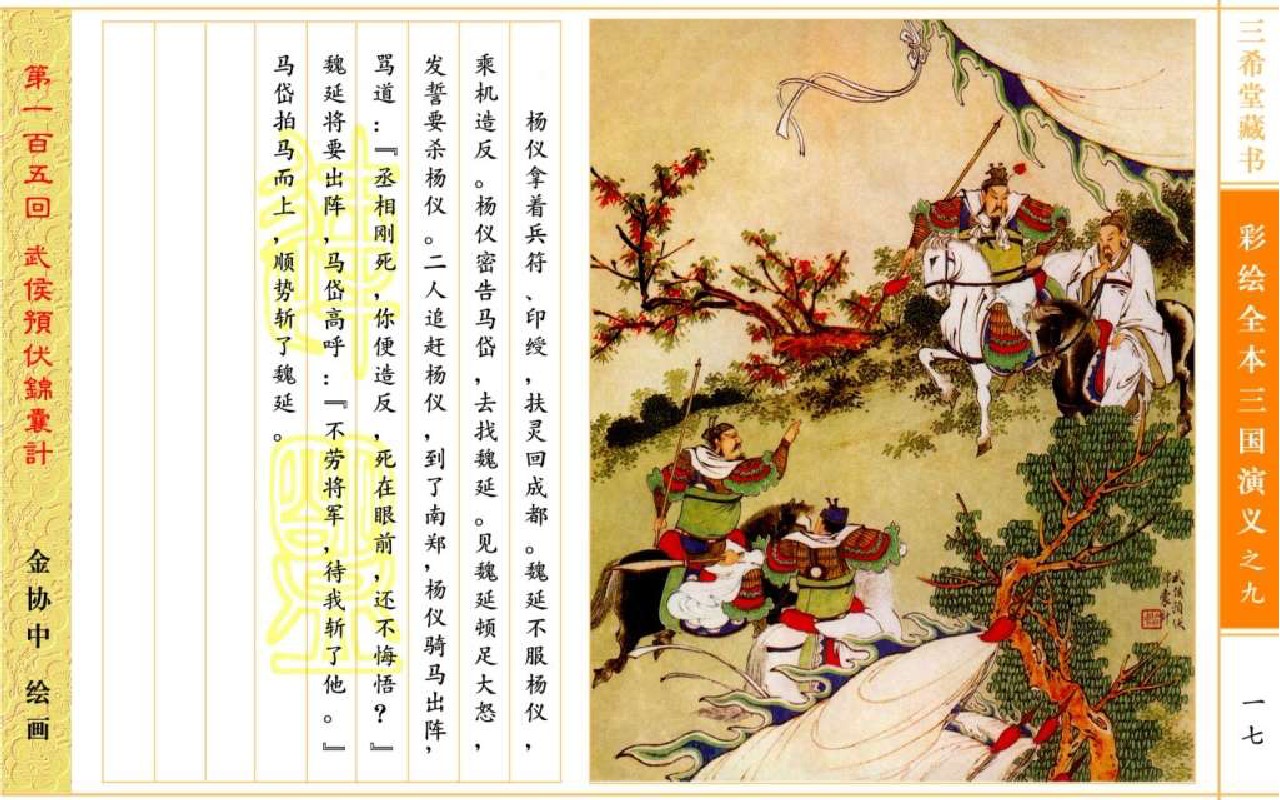 三希堂藏书
彩绘全本三国演义之九
一七
杨仪拿着兵符、印绶，扶灵回成都。魏延不服杨仪，
乘机造反。杨仪密告马岱，去找魏延。见魏延顿足大怒，
发誓要杀杨仪。二人追赶杨仪，到了南郑，杨仪骑马出阵，
骂道：『丞相刚死，你便造反，死在眼前，还不悔悟？』
魏延将要出阵，马岱高呼：『不劳将军，待我斩了他。』
马岱拍马而上，顺势斩了魏延。
第一百五回 武侯預伏錦囊計
金协中 绘画